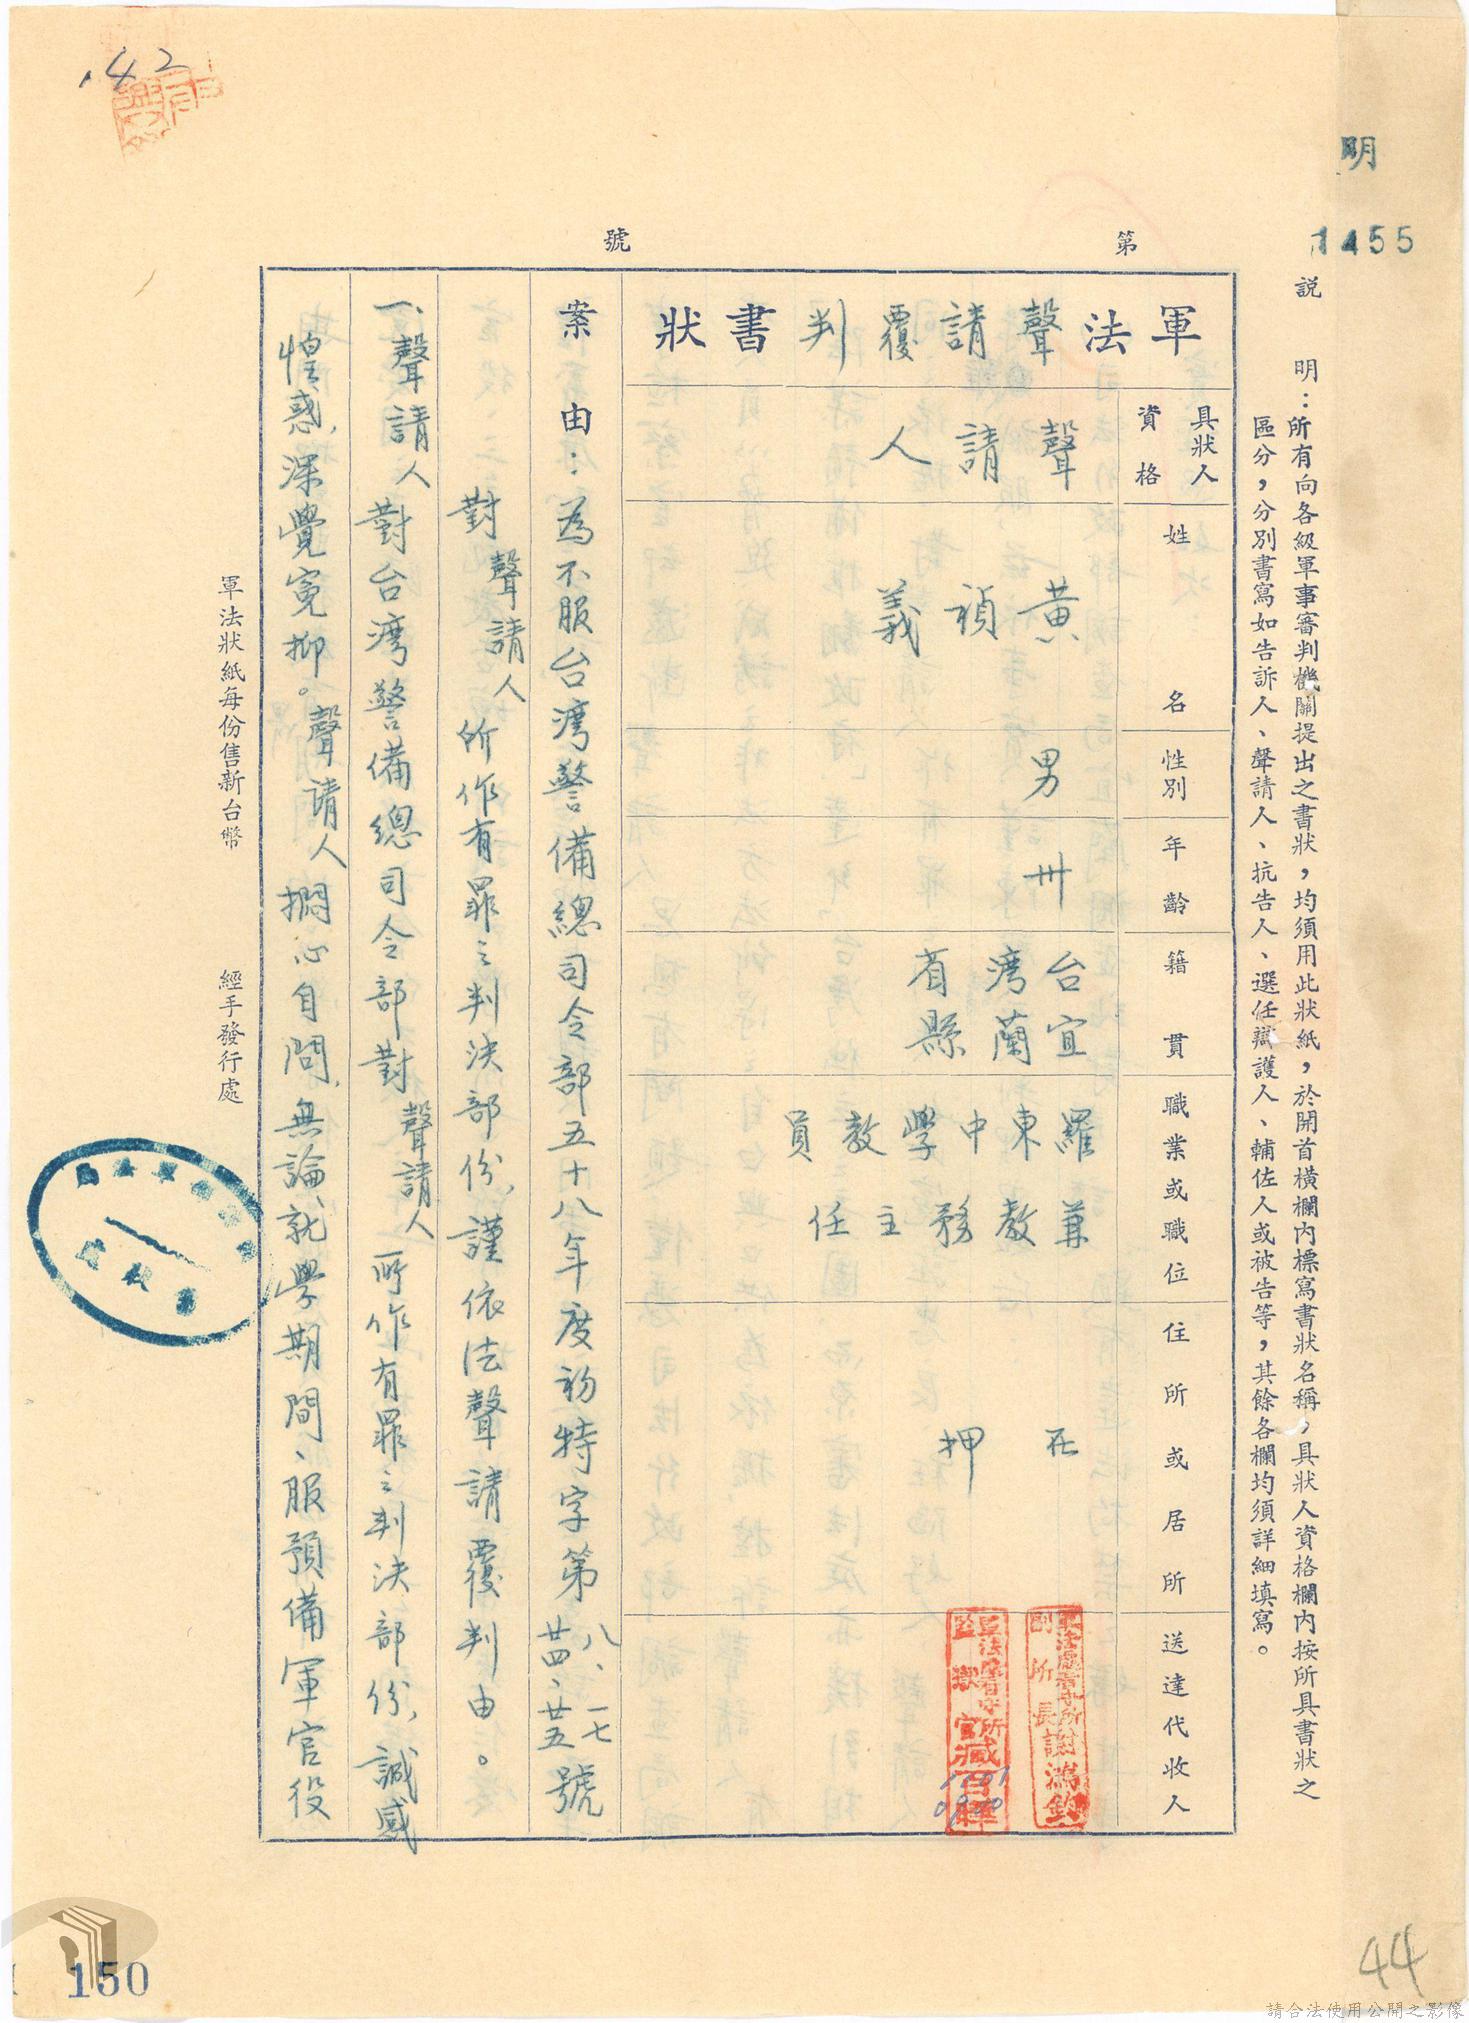 .42
明
1455
第
號
說　明：所有向各級軍事審判機關提出之書狀，均須用此狀紙，於開首橫欄內標寫書狀名稱，具狀人資格欄內按所具書狀之
區分，分別書寫如告訴人、聲請人、抗告人、選任辯護人、輔佐人或被告等，其餘各欄均須詳細填寫。
軍法聲請覆判書狀
具狀人資格
聲請人
姓名
黃禎義
性別
男
年齡
卅
籍貫
台灣省
宜蘭縣
職業或職位
羅東中學教員
兼教務主任
住所或居所
在押
送達代收人
軍法處看守所
副所長謝鴻鈞
軍法處看守所
監獄官臧
案由：為不服台灣警備總司令部五十八年度初特字第八、一七廿四、廿五號
對聲請人所作有罪之判決部份，謹依法聲請覆判由。
一、聲請人對台灣警備總司令部對聲請人所作有罪之判決部份，誠感
惶惑，深覺寃抑。聲請人捫心自問，無論、就學期間、服預備軍官役
軍法狀紙每份售新台幣
經手發行處
150
44
請合法使用公開之影像